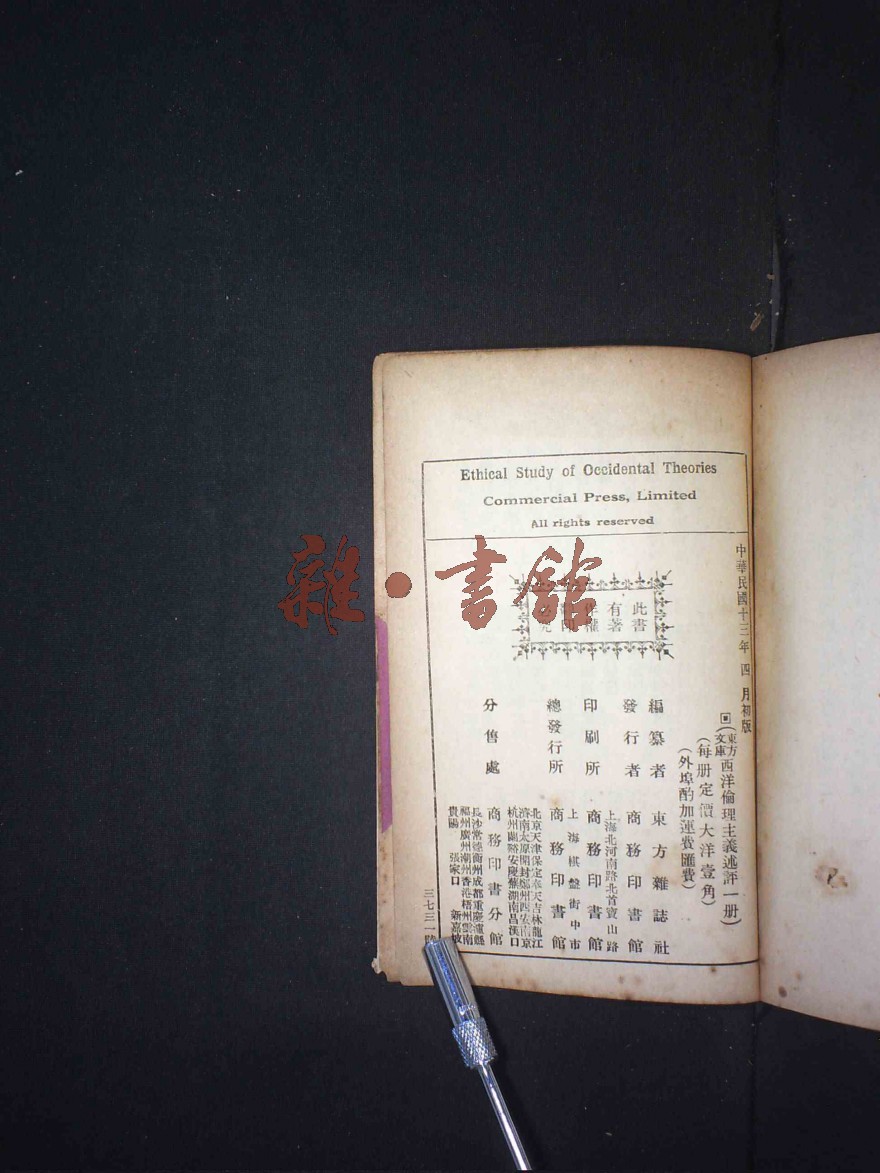 Ethical Study of Occidental Theories
Commercial Press, Limited
All rights reserved
雜·書館
中華民國十三年四月初版
(東方文庫)西洋倫理主義述評一册)
(每册定價大洋壹角)
(外埠酌加運費匯費)
此書
有著
作權
編纂者 東方雜誌社
發行者 商務印書館
上海北河南路北首寶山路
印刷所 商務印書館
上海棋盤街中市
總發行所 商務印書館
北京天津保定奉天吉林龍江
濟南太原開封鄭州西安南京
杭州蘭谿安慶蕪湖南昌漢口
分售處 商務印書分館
長沙常德衡州成都重慶瀘縣
福州廣州潮州香港梧州雲南
貴陽 張家口 新嘉坡
三七三一